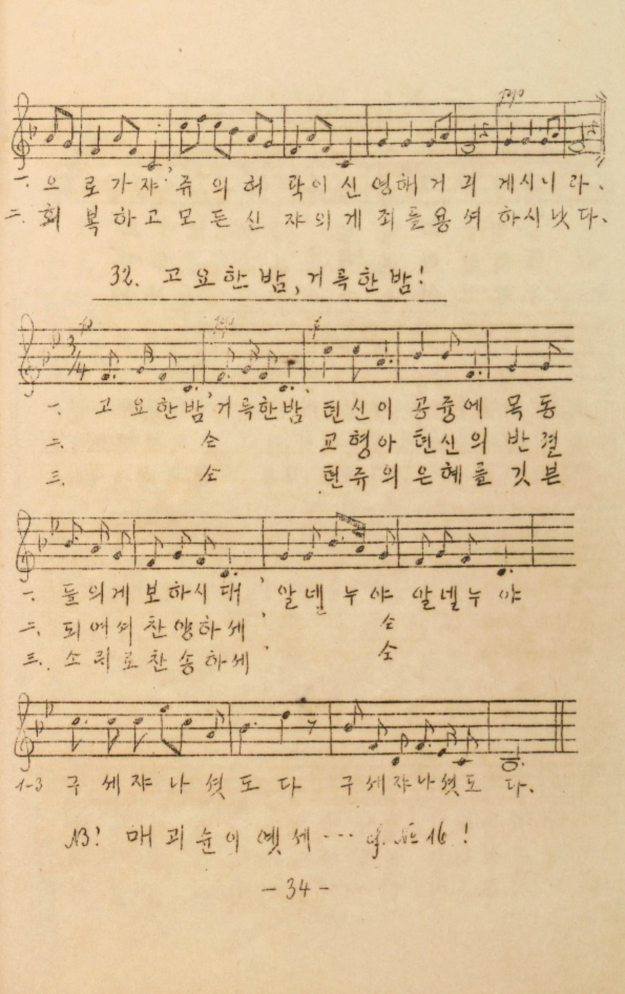 一. 으로가쟈 쥬의허락이신영해거긔계시니라.
二. 회복하고모든신쟈의게죄를용셔하시낫다.
32. 고요한밤, 거륵한밤!
p pp p
3/4
一. 고요한밤 거륵한밤 텬신이공즁에목동
二. 소 교형아텬신의반렬
三. 소 텬쥬의은혜를깃븐
一. 들의게보하시대 알넬누야알넬누야
二. 되여셔찬양하세 소
三. 소리로찬송하세 소
1-3 구세쟈나셧도다 구세쟈나셧도다.
NB! 매괴슌이옛세... cf. No 16!
- 34 -